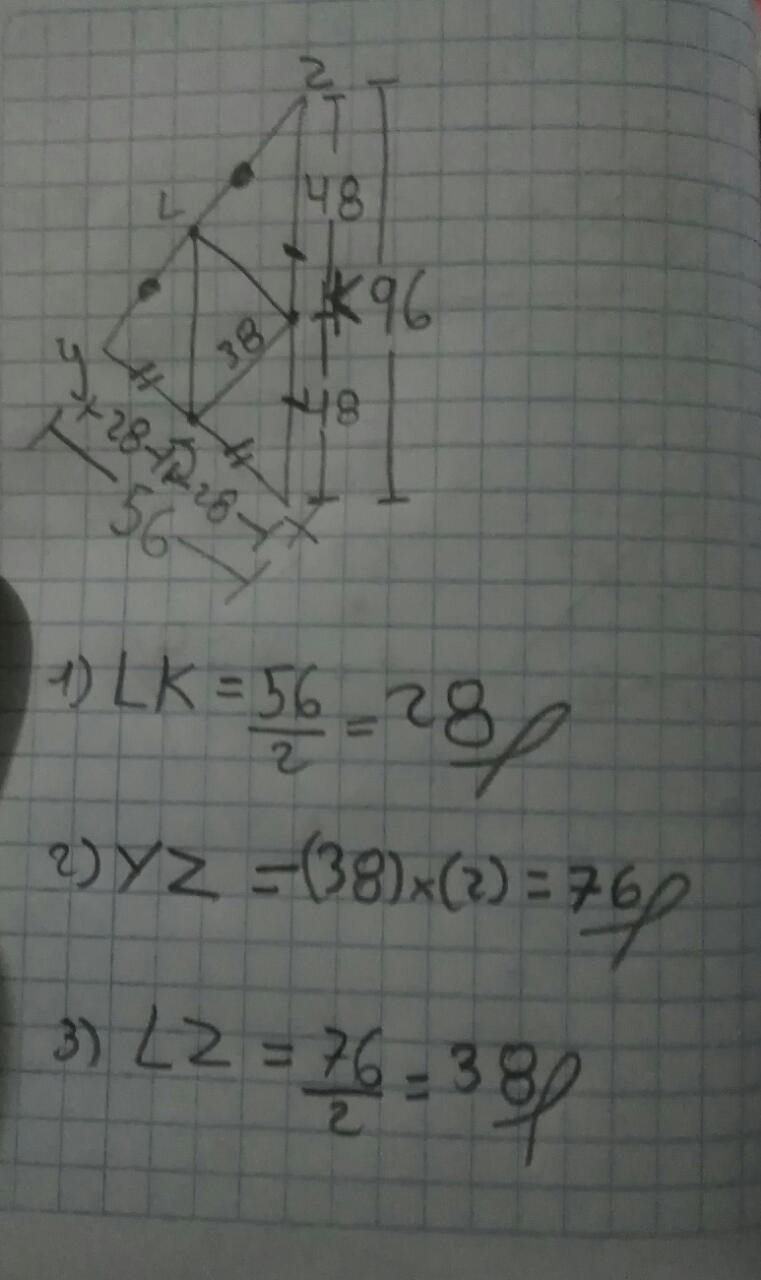 Z
48
L
K 96
38
y
48
28 R 28
X
56
1) LK = 56/2 = 28
2) YZ = (38)x(2) = 76
3) LZ = 76/2 = 38